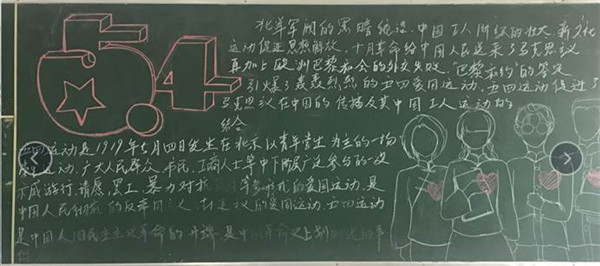 5.4
北洋军阀的黑暗统治,中国工人阶级的壮大,新文化
运动促进思想解放,十月革命给中国人民送来了马克思主义
再加上欧洲巴黎和会的外交失败,"巴黎和约"的签定
引爆了轰轰烈烈的五四爱国运动,五四运动促进了
马克思主义在中国的传播及其中国工人运动的
结合
五四运动是1919年5月四日发生在北京以青年学生为主的一场
运动,广大人民群众、市民、工商人士等中下阶层广泛参与的一次
示威游行、请愿、罢工、暴力对抗 等多种形式的爱国运动,是
中国人民彻底的反帝国主义、封建主义的爱国运动,五四运动
是中国人 旧民主主义革命的开端,是中 革命史上划